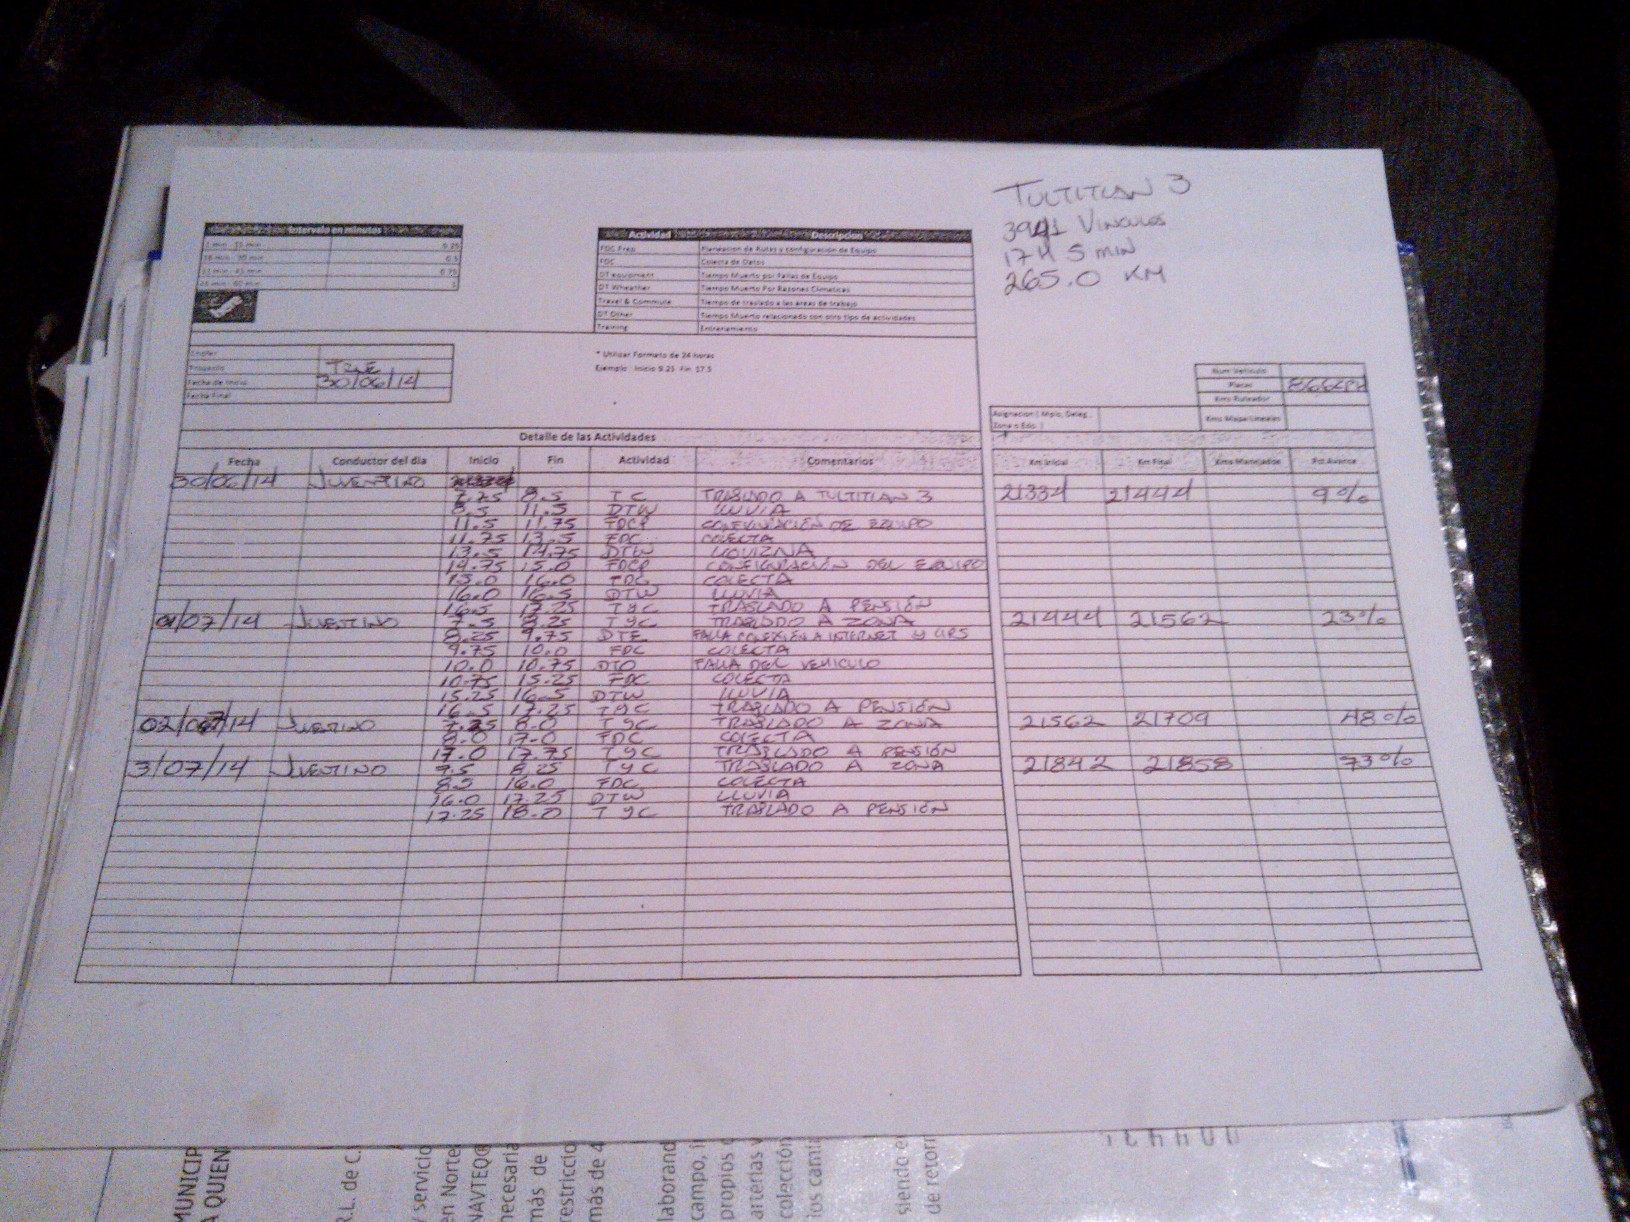 Intervalo en minutos
1 min - 15 min 0.25
16 min - 30 min 0.5
31 min - 45 min 0.75
46 min - 60 min 1
Actividad Descripcion
FDC Prep Planeacion de Rutas y configuración de Equipo
FDC Colecta de Datos
DT equipment Tiempo Muerto por Fallas de Equipo
DT Wheather Tiempo Muerto Por Razones Climaticas
Travel & Commute Tiempo de traslado a las areas de trabajo
DT Other Tiempo Muerto relacionado con otro tipo de actividades
Training Entrenamiento
TULTITLAN 3
3941 VINCULOS
17 H 5 MIN
265.0 KM
Chofer
Proyecto
Fecha de Inicio 30/06/14
Fecha Final
* Utilizar Formato de 24 horas
Ejemplo Inicio 9.25 Fin 17.5
Num Vehiculo
Placas
Kms Ruteador
Asignacion ( Mpio, Deleg, Zona o Edo. ) Kms Mapa Lineales
Detalle de las Actividades
Fecha Conductor del dia Inicio Fin Actividad Comentarios Km Inicial Km Final Kms Manejados Pct Avance
30/06/14 JUVENTINO
7.75 8.5 T C TRASLADO A TULTITLAN 3 21334 21444 9%
8.5 11.5 DTW LLUVIA
11.5 11.75 FDCP CONFIGURACIÓN DE EQUIPO
11.75 13.5 FDC COLECTA
13.5 14.75 DTW LLOVIZNA
14.75 15.0 FDCP CONFIGURACIÓN DEL EQUIPO
15.0 16.0 FDC COLECTA
16.0 16.5 DTW LLUVIA
16.5 17.25 TYC TRASLADO A PENSIÓN
01/07/14 JUVENTINO 7.5 8.25 TYC TRASLADO A ZONA 21444 21562 23%
8.25 9.75 DTE FALLA CONEXIÓN A INTERNET Y GPS
9.75 10.0 FDC COLECTA
10.0 10.75 DTO FALLA DEL VEHICULO
10.75 15.25 FDC COLECTA
15.25 16.5 DTW LLUVIA
16.5 17.25 TYC TRASLADO A PENSIÓN
02/07/14 8.0 TYC TRASLADO A ZONA 21562 21709 48%
8.0 17.0 FDC COLECTA
17.0 17.75 TYC TRASLADO A PENSIÓN
3/07/14 JUVENTINO 8.25 TYC TRASLADO A ZONA 21842 21858 73%
16.0 FDC COLECTA
16.0 17.25 DTW LLUVIA
17.25 18.0 TYC TRASLADO A PENSIÓN
MUNICIP
A QUIEN
R.L. de C.
y servicio
en Norte
NAVTEQ®
necesaria
más de
restriccio
más de 4
laborand
campo, i
propios
arterias v
colección
los cami
siendo e
de retorn